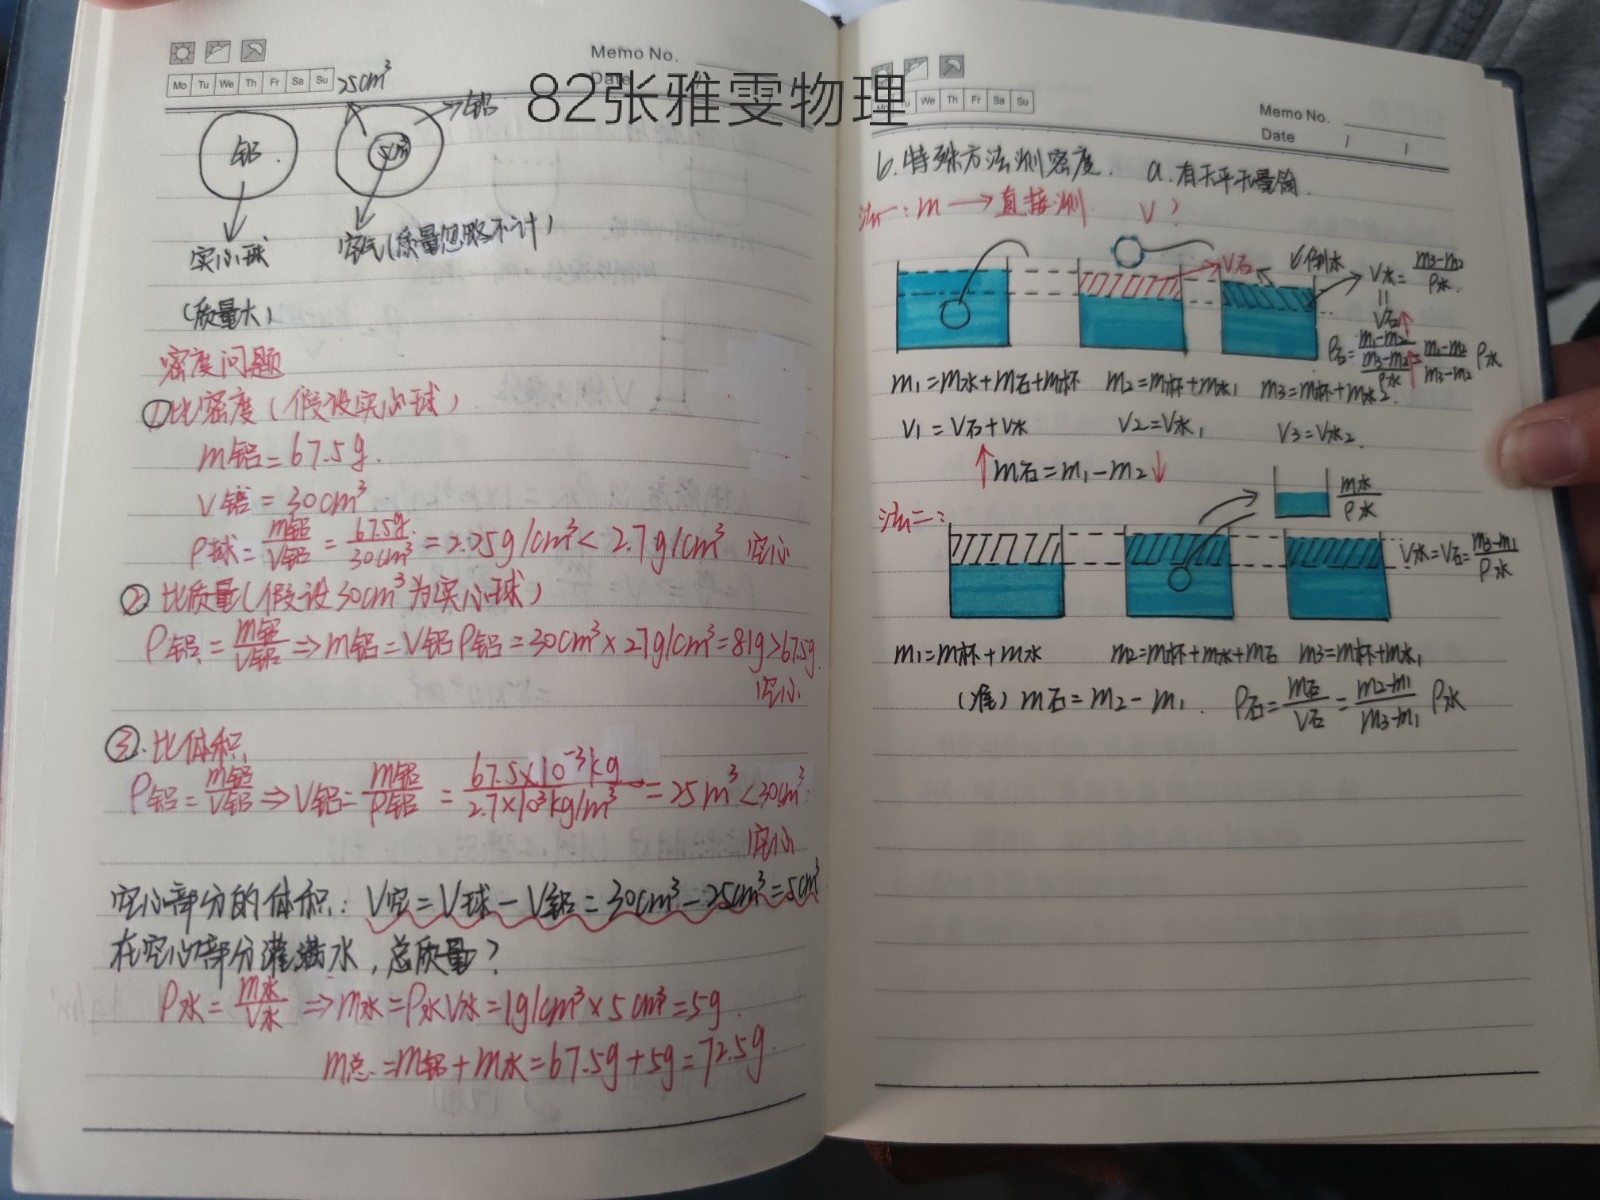 82张雅雯物理
Memo No.
Date
Mo Tu We Th Fr Sa Su
25cm³
铝
铝
5cm³
实心球
空气(质量忽略不计)
(质量大)
密度问题
①比密度(假设实心球)
m铝=67.5g.
V铝=30cm³
ρ球=m铝/V铝=67.5g/30cm³=2.25g/cm³<2.7g/cm³ 空心
②比质量(假设30cm³为实心球)
ρ铝=m铝/V铝⇒m铝=V铝ρ铝=30cm³×2.7g/cm³=81g>67.5g.
空心.
③.比体积
ρ铝=m铝/V铝⇒V铝=m铝/ρ铝=67.5×10⁻³kg/2.7×10³kg/m³=25m³<30cm³.
空心
空心部分的体积:V空=V球-V铝=30cm³-25cm³=5cm³
在空心部分灌满水,总质量?
ρ水=m水/V水⇒m水=ρ水V水=1g/cm³×5cm³=5g.
m总=m铝+m水=67.5g+5g=72.5g.
We Th Fr Sa Su
Memo No.
Date / /
b.特殊方法测密度. a.有天平无量筒.
法一:m→直接测 V
V石
V倒水
V水=m3-m2/ρ水.
=
V石
ρ石=m1-m2/(m3-m2/ρ水)=m1-m2/m3-m2 ρ水
m1=m水+m石+m杯 m2=m杯+m水1 m3=m杯+m水2.
V1=V石+V水 V2=V水1 V3=V水2.
m石=m1-m2
m水/ρ水
法二:
V水=V石=m3-m1/ρ水
m1=m杯+m水 m2=m杯+m水+m石 m3=m杯+m水1
(准) m石=m2-m1. ρ石=m石/V石=m2-m1/m3-m1 ρ水